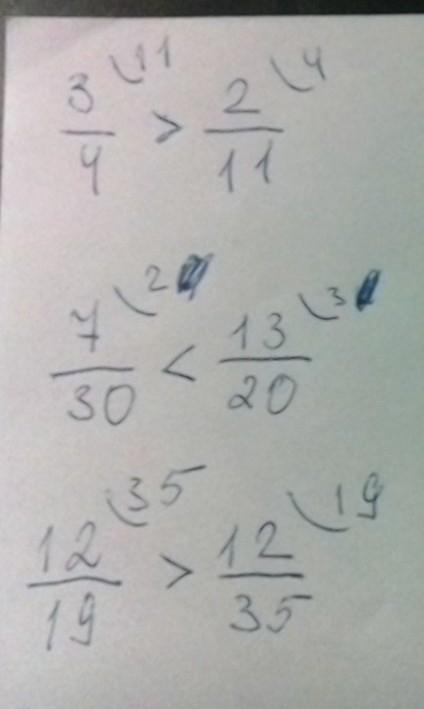 3/4 \11 > 2/11 \4
7/30 \2 < 13/20 \3
12/19 \35 > 12/35 \19